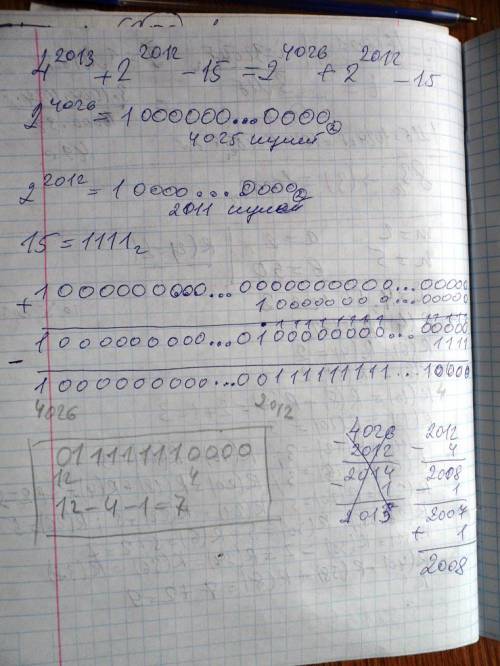 4^2013 + 2^2012 - 15 = 2^4026 + 2^2012 - 15
2^4026 = 1 000000...0000₂
4025 нулей
2^2012 = 1 0000...0000₂
2011 нулей
15 = 1111₂
+ 1000000000...0000000000...00000
10000000 0...00000
1 000000000...0100000000...00000
- 1111
1 000000000...0011111111...10000
4026 2012 4
011111110000
12 4
12-4-1=7
4026
- 2012
2014
- 1
2013
2012
- 4
2008
- 1
2007
+ 1
2008